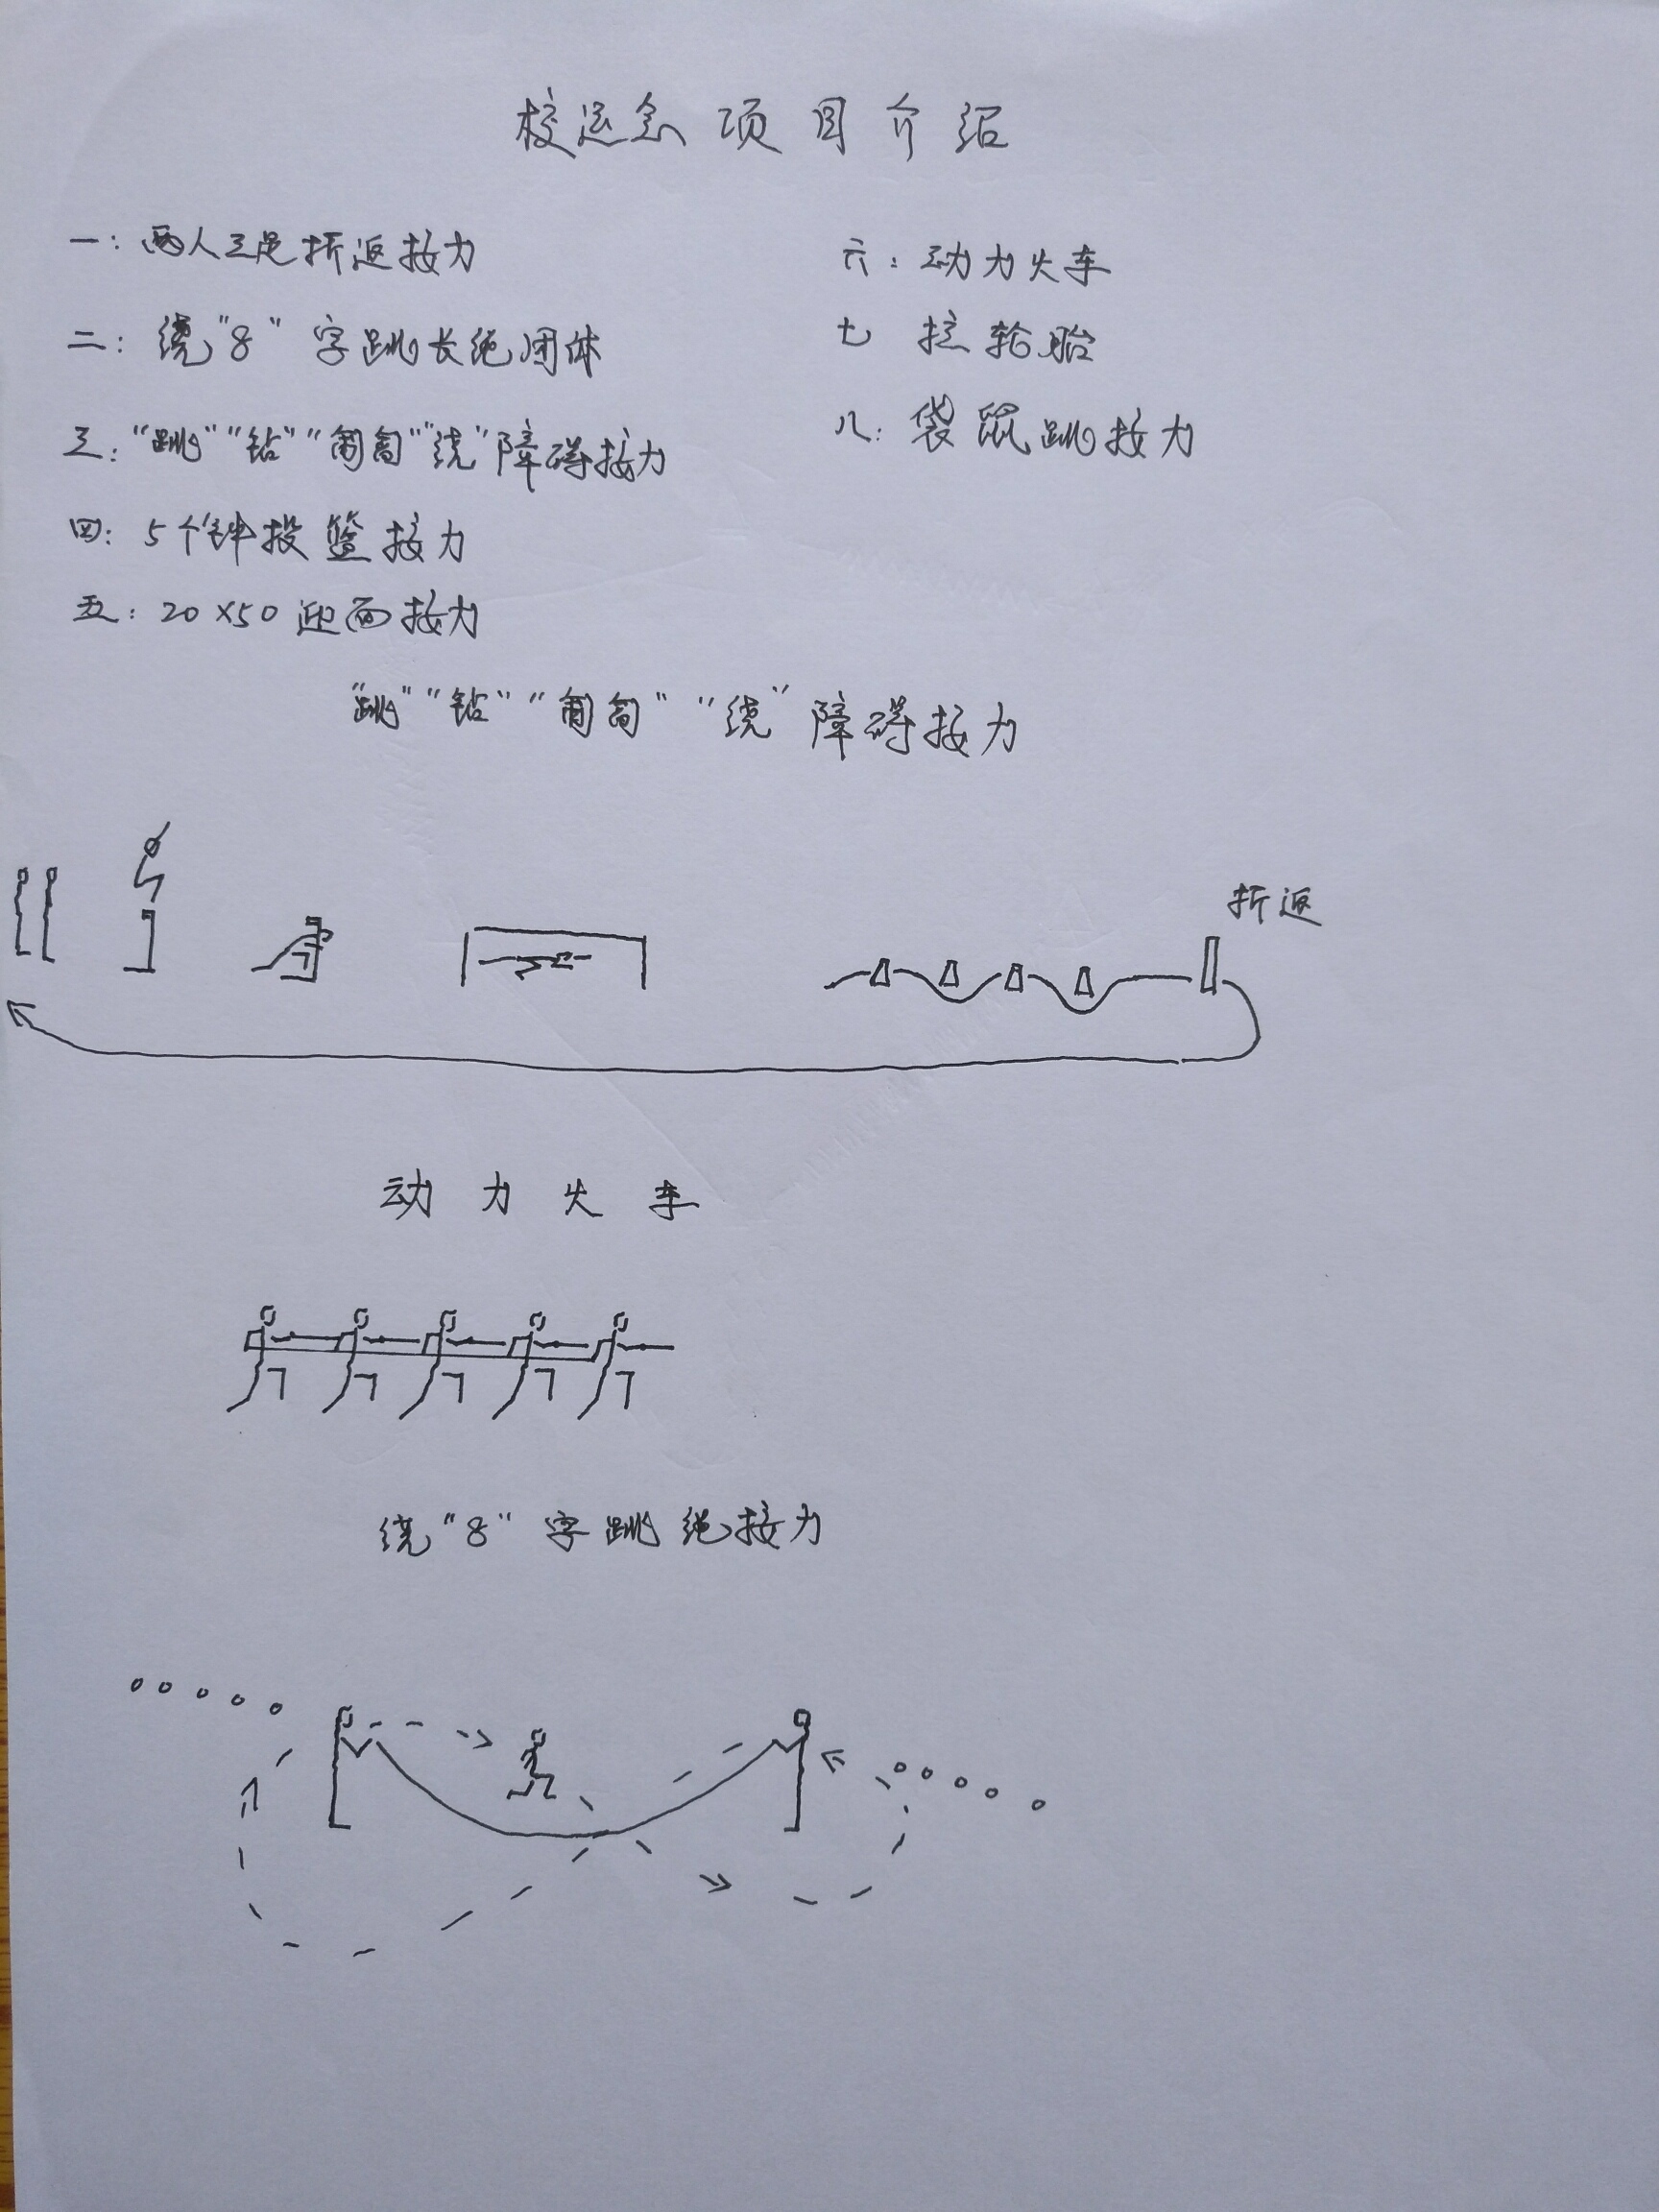 校运会项目介绍
一：两人三足折返接力
二：绕"8"字跳长绳团体
三："跳""钻""匍匐""绕"障碍接力
四：5个钟投篮接力
五：20×50迎面接力
六：动力火车
七 拉轮胎
八：袋鼠跳接力
"跳""钻""匍匐""绕"障碍接力
折返
动力火车
绕"8"字跳绳接力